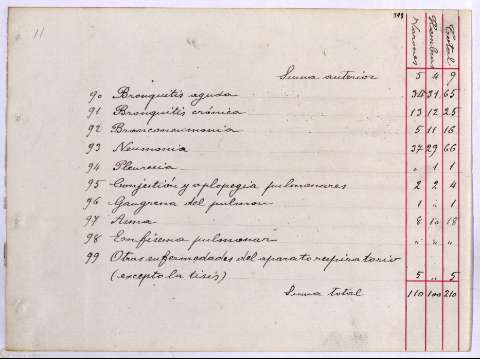 11
Varones Hembras Total
Suma anterior 5 4 9
90 Bronquitis aguda 34 31 65
91 Bronquitis crónica 13 12 25
92 Bronconeumonia 5 11 16
93 Neumonia 37 29 66
94 Pleuresia " 1 1
95 Conjestión y aplopegia pulmonares 2 2 4
96 Gangrena del pulmon 1 " 1
97 Asma 8 10 18
98 Enfisema pulmonar " " "
99 Otras enfermedades del aparato respiratorio
(excepto la tisis) 5 " 5
Suma total 110 100 210